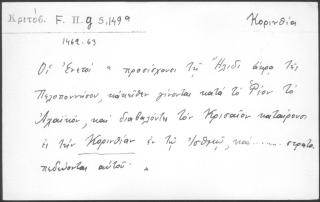 Κριτόβ. F. H. g 5, 149 a
Κορινθία
1462.63
Οἱ Ἐνετοὶ " προσίσχουσι τῇ Ἤλιδι ἄκρᾳ τῆς
Πελοποννήσου, κἀκεῖθεν γίνονται κατὰ τὸ Ῥίον τὸ
Ἀχαϊκόν, καὶ διαβαλόντες τὸν Κρισαῖον καταίρουσι
ἐς τὴν Κορινθίαν ἐν τῷ Ἰσθμῷ, καὶ ........ στρατο
πεδεύονται αὐτοῦ. "